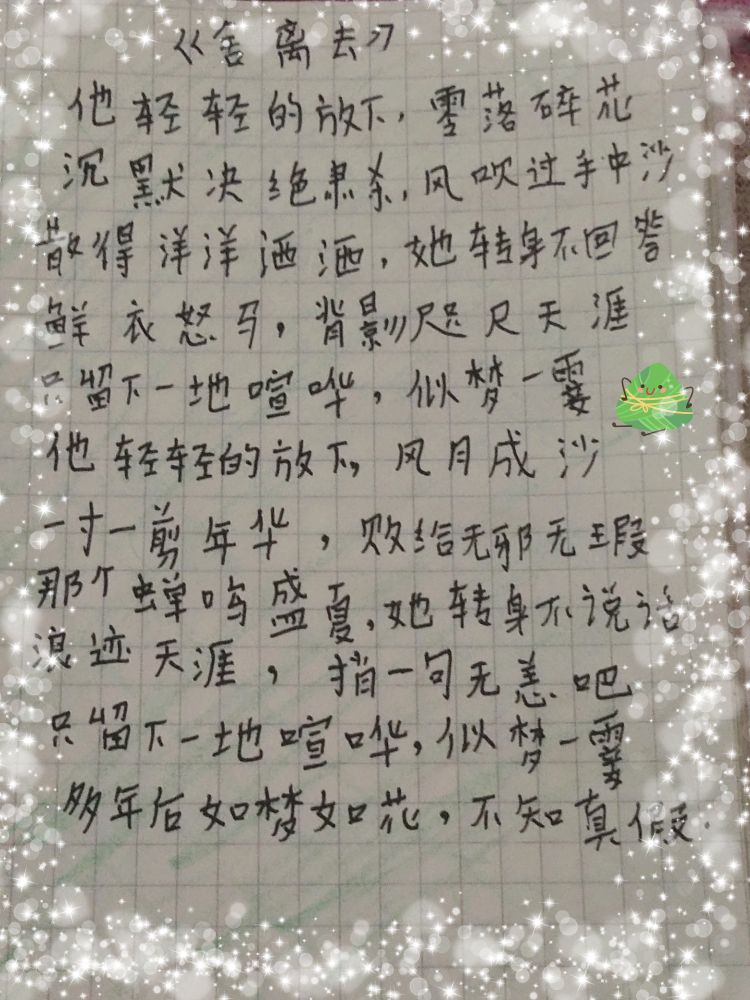 《舍离去》
他轻轻的放下，零落碎花
沉默决绝肃杀，风吹过手中沙
散得洋洋洒洒，她转身不回答
鲜衣怒马，背影咫尺天涯
只留下一地喧哗，似梦一霎
他轻轻的放下，风月成沙
一寸一剪年华，败给无邪无瑕
那个蝉鸣盛夏，她转身不说话
浪迹天涯，捎一句无恙吧
只留下一地喧哗，似梦一霎
多年后如梦如花，不知真假.